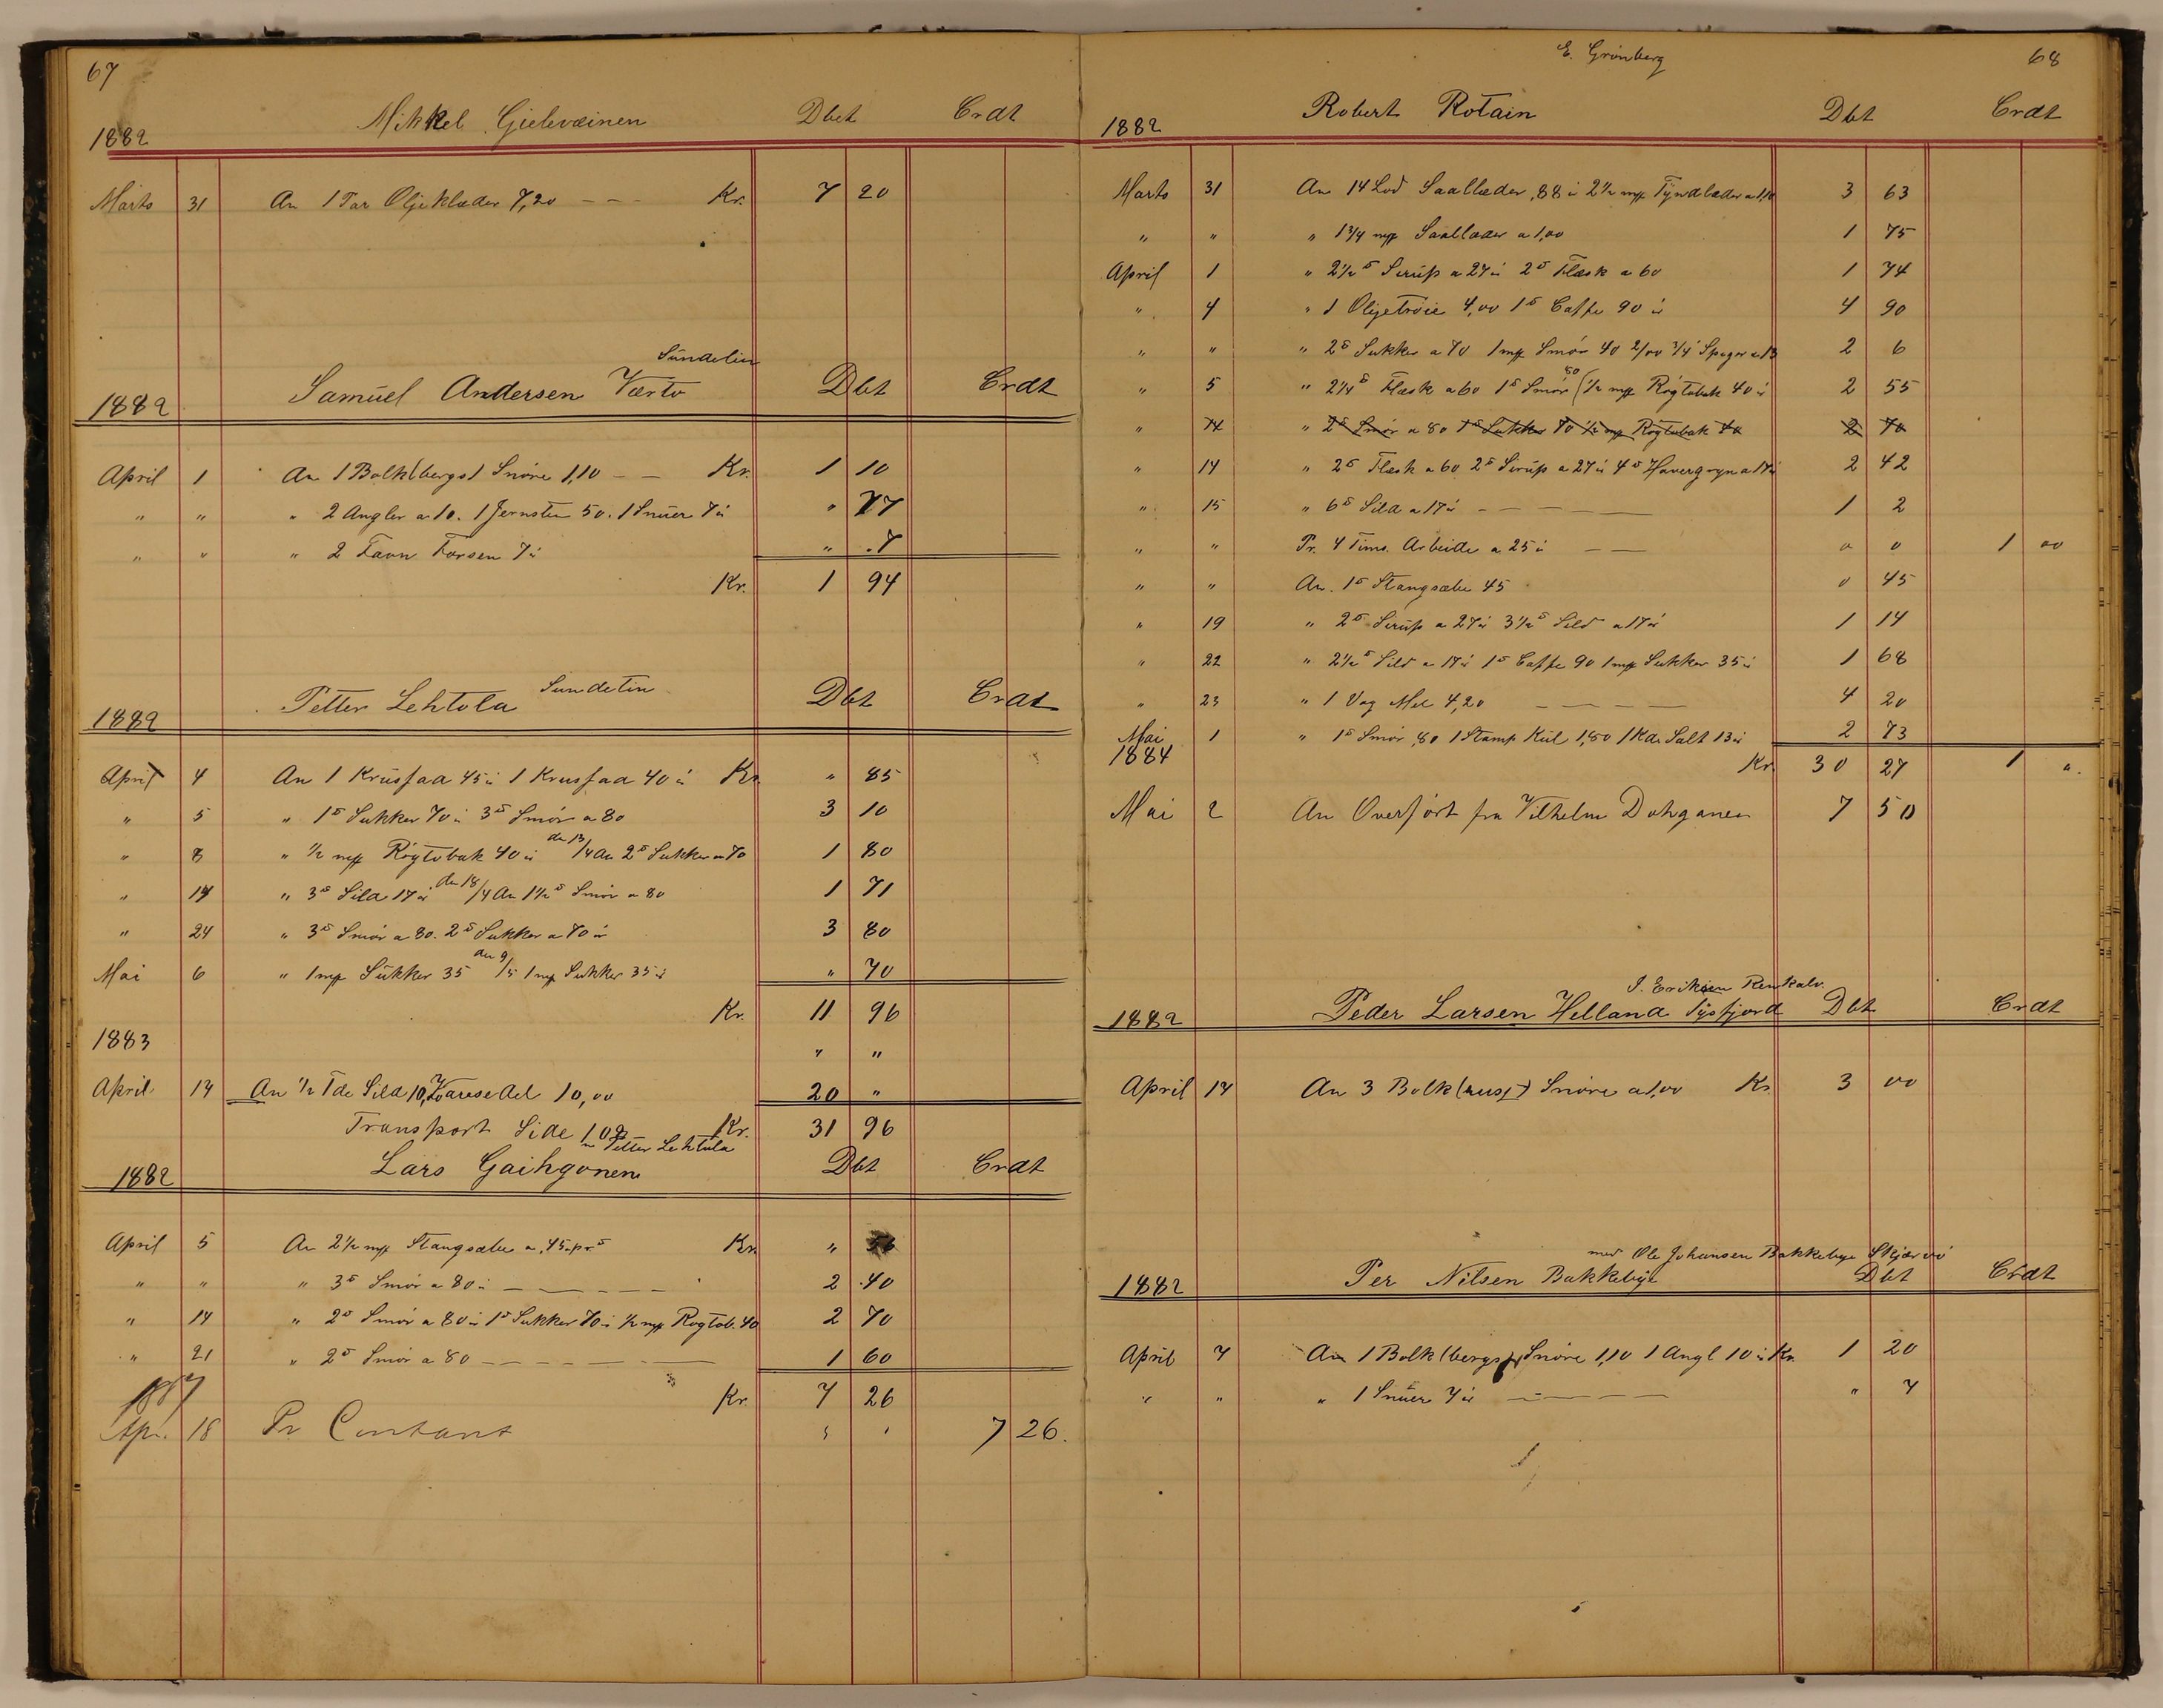 67
Mikkel Gielevæinen Dbet Crdt
1882
Marts 31 An 1 Par Oljeklæder 7,20 - - - Kr. 7 20
Sündelin
1882 Samüel Andersen Værto Dbt Crdt
April 1 An 1 Bolk (bergs) Snøre 1,10 - - Kr. 1 10
" " " 2 Angler a 10. 1 Jernsten 50. 1 Snüer 7 ø " 77
" " " 2 Favn Forsen 7 ø " 7
Kr. 1 94
Sundelin
1882 Petter Lehtola Dbt Crdt
April 4 An 1 Krusfad 45 ø 1 Krusfad 40 ø Kr. " 85
" 5 " 1 ℔ Sukker 70 ø 3 ℔ Smør a 80 3 10
" 8 " 1/2 mp Røgtobak 40 ø den 13/4 An 2 ℔ Sukker a 70 1 80
" 14 " 3 ℔ Sild 17 ø den 18/4 An 1 1/2 ℔ Smør a 80 1 71
" 24 " 3 ℔ Smør a 80. 2 ℔ Sukker a 70 ø 3 80
Mai 6 " 1 mp Sükker 35 den 9/5 1 mp Sukker 35 ø " 70
Kr. 11 96
1883 " "
April 14 An 1/2 Tde Sild 10, 10,00 20 "
Transport Side 102 Kr. 31 96
m Petter Lehtola
1882 Lars Gaihgonen Dbt Crdt
April 5 An 2 1/2 mp Stangsæbe a ,45 pr ℔ Kr. " 56
" " " 3 ℔ Smør a 80 ø - - - - - 2 40
" 14 " 2 ℔ Smør a 80 ø 1 ℔ Sukker 70 ø 1/2 mp Røgtob. 40 2 70
" 21 " 2 ℔ Smør a 80 - - - - - - 1 60
1887 Kr. 7 26
Apr. 18 Pr Contant " " 7 26.
E. Grønberg 68
1882 Robert Rotain Dbt Crdt
Marts 31 An 14 Lod Saallæder ,88 ø 2 1/2 mp Tyndlæder a 1,10 3 63
" " " 1 3/4 mp Saallæder a 1,00 1 75
April 1 " 2 1/2 ℔ Sirüp a 27 ø 2 ℔ Flæsk a 60 1 74
" 4 " 1 Oljetrøie 4,00 1 ℔ Caffe 90 ø 4 90
" " " 2 ℔ Sukker a 70 1 mp Smør 40 2/00 3/4" Spiger a 13 2 6
" 5 " 2 1/4 ℔ Flæsk a 60 1 ℔ Smør 80 (1/2 mp Røgtobak 40 ø 2 55
" 14 " 2 ℔ Smør a 80 1 ℔ Sukker 70 1/2 mp Røgtobak 40 2 70
" 14 " 2 ℔ Flæsk a 60 2 ℔ Sirüp a 27 ø 4 ℔ Havregryn a 17 ø 2 42
" 15 " 6 ℔ Sild a 17 ø - - - - - 1 2
" " Pr. 4 Tims. Arbeide a 25 ø - - 0 0 1 00
" " An. 1 ℔ Stangsæbe 45 0 45
" 19 " 2 ℔ Sirüp a 27 ø 3 1/2 ℔ Sild a 17 ø 1 14
" 22 " 2 1/2 ℔ Sild a 17 ø 1 ℔ Caffe 90 1 mp Sukker 35 ø 1 68
" 23 " 1 Vog Mel 4,20 - - - - 4 20
Mai 1 " 1 ℔ Smør ,80 1 Stamp Kül 1,80 1 Kde Salt 13 ø 2 73
1884 Kr. 30 27 1 ".
Mai 2 An Overført fra Vilhelm Dohganen 7 50
J. Eriksen Renkalv.
1882 Peder Larsen Helland Sysfjord Dbt Crdt
April 14 An 3 Bolk (rusf) Snøre a 1,00 Kr. 3 00
med Ole Johansen Bakkebye Skjærvø
1882 Per Nilsen Bakkebye Dbt Crdt
April 7 An 1 Bolk (bergs) Snøre 1,10 1 Angl 10 ø Kr. 1 20
" " " 1 Snüer 7 ø - - - - " 7